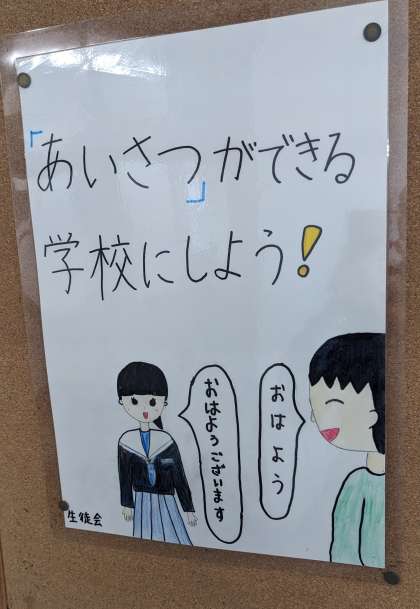 「あいさつ」ができる
学校にしよう!
おはよう
おはようございます
生徒会